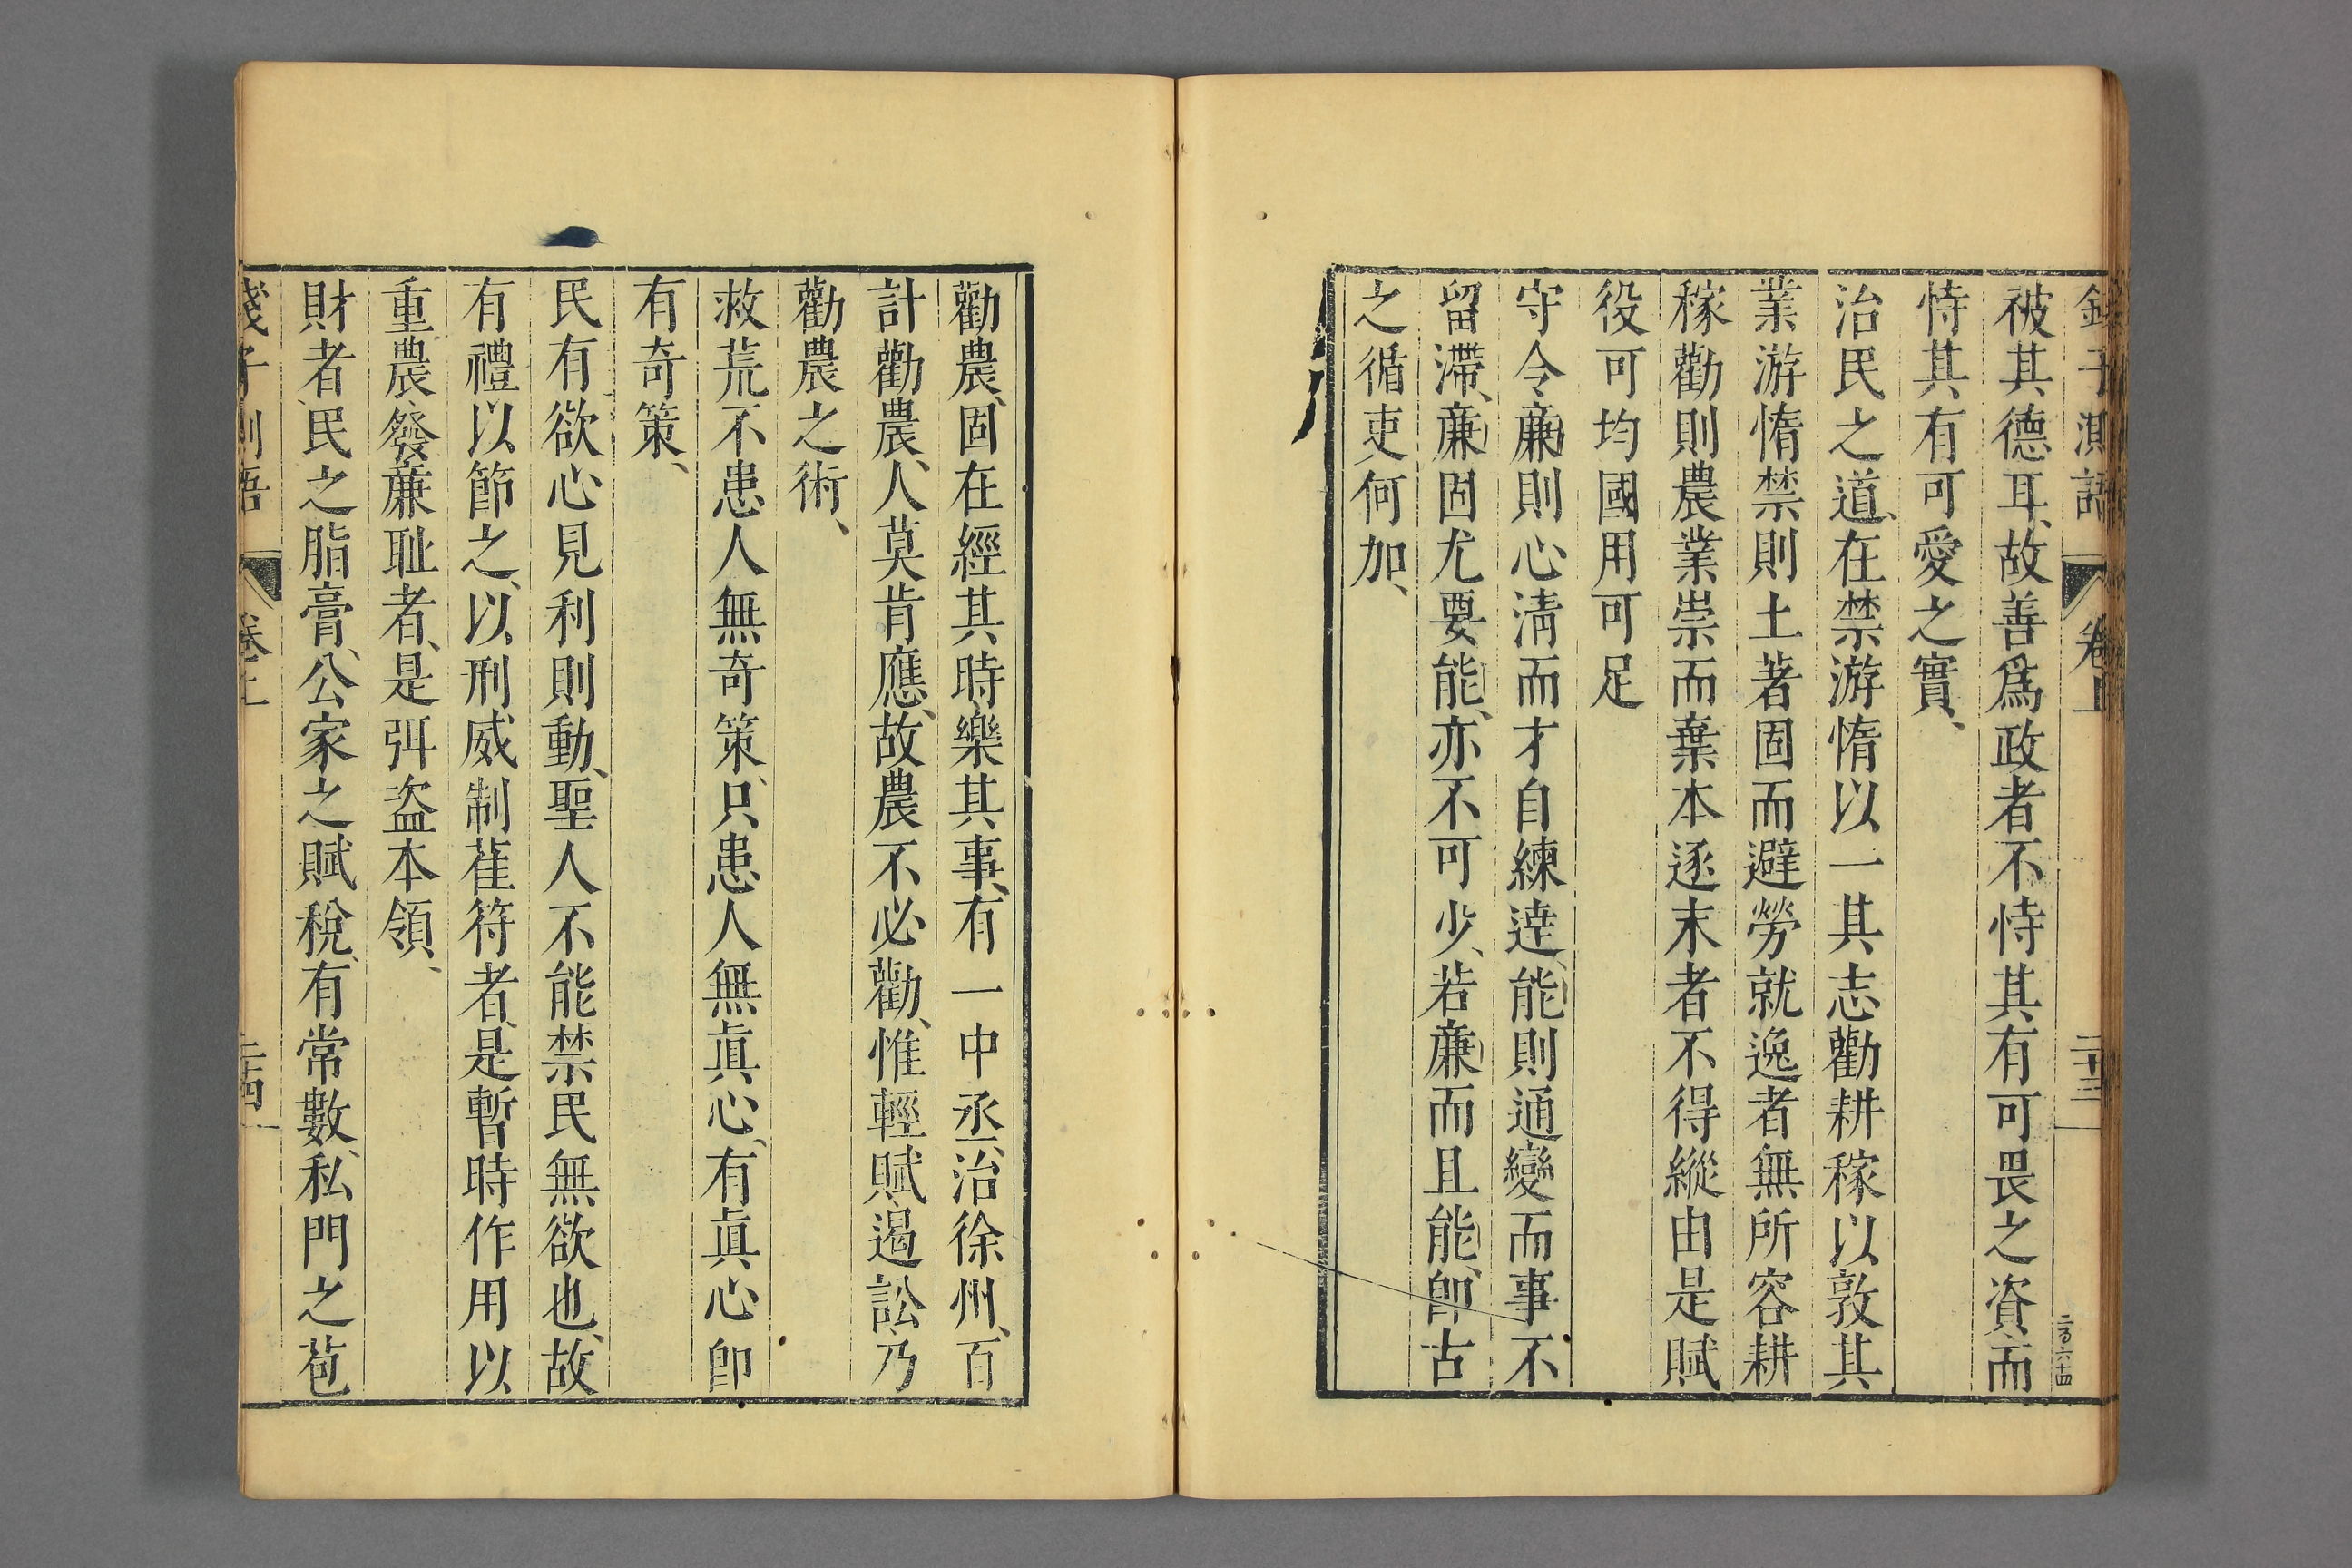 錢子測語 卷上 二十三 二百六十四
被其德耳、故善爲政者不恃其有可畏之資、而
恃其有可愛之實、
治民之道、在禁游惰以一其志勸耕稼以敦其
業游惰禁則土著固而避勞就逸者無所容耕
稼勸則農業崇而棄本逐末者不得縱由是賦
役可均國用可足
守令廉則心淸而才自練達、能則通變而事不
留滯、廉固尤要、能亦不可少、若廉而且能、卽古
之循吏何加、
勸農、固在經其時樂其事、有一中丞、治徐州、百
計勸農、人莫肯應、故農不必勸、惟輕賦遏訟、乃
勸農之術、
救荒不患人無奇策、只患人無眞心、有眞心卽
有奇策、
民有欲心見利則動、聖人不能禁民無欲也、故
有禮以節之、以刑威制萑苻者、是暫時作用以
重農發廉耻者、是弭盗本領、
財者、民之脂膏、公家之賦稅、有常數、私門之苞
錢子測語 卷上 二十四